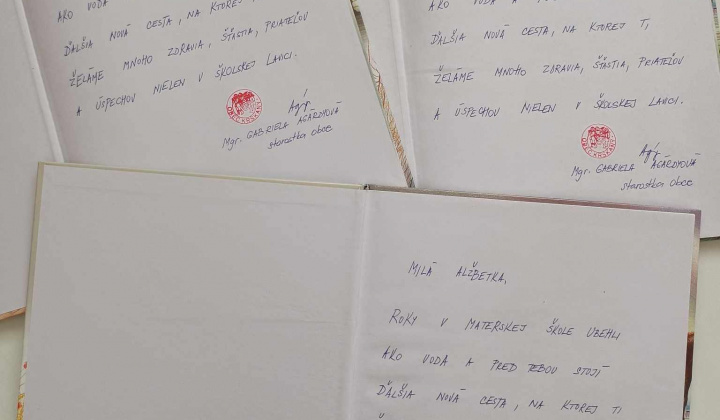 AKO VODA
ĎALŠIA NOVÁ CESTA, NA KTOREJ
ŽELÁME MNOHO ZDRAVIA, ŠŤASTIA, PRIATEĽOV
A ÚSPECHOV NIELEN V ŠKOLSKEJ LAVICI.
Mgr. GABRIELA AGÁRDYOVÁ
starostka obce
AKO VODA A
ĎALŠIA NOVÁ CESTA, NA KTOREJ TI,
ŽELÁME MNOHO ZDRAVIA, ŠŤASTIA, PRIATEĽOV
A ÚSPECHOV NIELEN V ŠKOLSKEJ LAVICI.
Mgr. GABRIELA AGÁRDYOVÁ
starostka obce
MILÁ ALŽBETKA,
ROKY V MATERSKEJ ŠKOLE UBEHLI
AKO VODA A PRED TEBOU STOJÍ
ĎALŠIA NOVÁ CESTA, NA KTOREJ TI